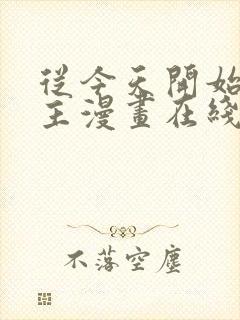 從今天開始
主漫畫在綫
不落空塵